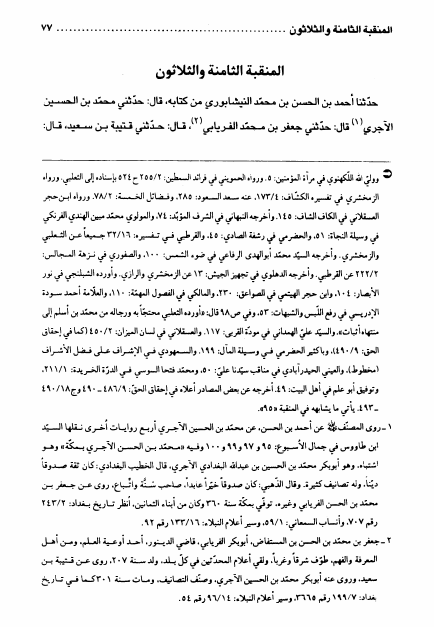 المنقبة الثامنة والثلاثون ................................................ ٧٧
المنقبة الثامنة والثلاثون
حدّثنا أحمد بن الحسن بن محمّد النيشابوري من كتابه، قال: حدّثني محمّد بن الحسين
الآجري(١) قال: حدّثني جعفر بن محمّد الفريابي(٢)، قال: حدّثني قتيبة بن سعيد، قال:
ووليّ الله اللكهنوي في مرآة المؤمنين: ٥. ورواه الحمويني في فرائد السمطين: ٢٥٥/٢ ح٥٢٤ بإسناده إلى الثعلبي. ورواه
الزمخشري في تفسيره الكشّاف: ١٧٣/٤، عنه سعد السعود: ٢٨٥، وفضائل الخمسة: ٧٨/٢. ورواه ابن حجر
العسقلاني في الكاف الشاف: ١٤٥. وأخرجه النبهاني في الشرف المؤبّد: ٧٤، والمولوي محمّد مبين الهندي الفرنكي
في وسيلة النجاة: ٥١، والحضرمي في رشفة الصادي: ٤٥، والقرطبي في تفسيره: ١٦/٣٢ جميعاً عن الثعلبي
والزمخشري. وأخرجه السيّد محمّد أبوالهدى الرفاعي في ضوء الشمس: ١٠٠، والصفوري في نزهة المجالس:
٢٢٢/٢ عن القرطبي. وأخرجه الدهلوي في تجهيز الجيش: ١٣ عن الزمخشري والرازي. وأورده الشبلنجي في نور
الأبصار: ١٠٤، وابن حجر الهيتمي في الصواعق: ٢٣٠، والمالكي في الفصول المهمّة: ١١٠، والعلّامة أحمد سودة
الإدريسي في رفع اللّبس والشبهات: ٥٣، وفي ص٩٨ قال: «أورده الثعلبي محتجّاً به ورجاله من محمّد بن أسلم إلى
منتهاه أثبات». والسيّد عليّ الهمداني في مودّة القربى: ١١٧. والعسقلاني في لسان الميزان: ٤٥٠/٢ (كما في إحقاق
الحق: ٤٩٠/٩)، وباكثير الحضرمي في وسيلة المآل: ١٩٩. والسمهودي في الإشراف على فضل الأشراف
(مخطوط)، والعيني الحيدرآبادي في مناقب سيّدنا عليّ: ٥٠، ومحمّد فتحا السوسي في الدرّة الخريدة: ٢١١/١،
وتوفيق أبو علم في أهل البيت: ٤٩. أخرجه عن بعض المصادر أعلاه في إحقاق الحقّ: ٤٨٦/٩ ــ ٤٩٠ وج٤٩٠/١٨
ــ ٤٩٣. يأتي ما يشابهه في المنقبة «٩٥».
١ ـ روى المصنّف عن أحمد بن الحسن، عن محمّد بن الحسين الآجري أربع روايات أخرى نقلها السيّد
ابن طاووس في جمال الأسبوع: ٩٥ و ٩٧ و ٩٩ و ١٠٠ وفيه «محمّد بن الحسن الآجري بمكّة» وهو
اشتباه. وهو أبوبكر محمّد بن الحسين بن عبدالله البغدادي الآجري، قال الخطيب البغدادي: كان ثقة صدوقاً
ديّناً، وله تصانيف كثيرة. وقال الذهبي: كان صدوقاً خيّراً عابداً، صاحب سنّة واتّباع، روى عن جعفر بن
محمّد بن الحسن الفريابي وغيره، توفّي بمكّة سنة ٣٦٠ وكان من أبناء الثمانين، اُنظر تاريخ بغداد: ٢٤٣/٢
رقم ٧٠٧، وأنساب السمعاني: ٥٩/١، وسير أعلام النبلاء: ١٣٣/١٦ رقم ٩٢.
٢ ـ جعفر بن محمّد بن الحسن بن المستفاض، أبوبكر الفريابي، قاضي الدينور، أحد أوعية العلم، ومن أهل
المعرفة والفهم، طوّف شرقاً وغرباً، ولقي أعلام المحدّثين في كلّ بلد، ولد سنة ٢٠٧، روى عن قتيبة بن
سعيد، وروى عنه أبوبكر محمّد بن الحسين الآجري، وصنّف التصانيف، ومات سنة ٣٠١ كما في تاريخ
بغداد: ١٩٩/٧ رقم ٣٦٦٥، وسير أعلام النبلاء: ٩٦/١٤ رقم ٥٤.